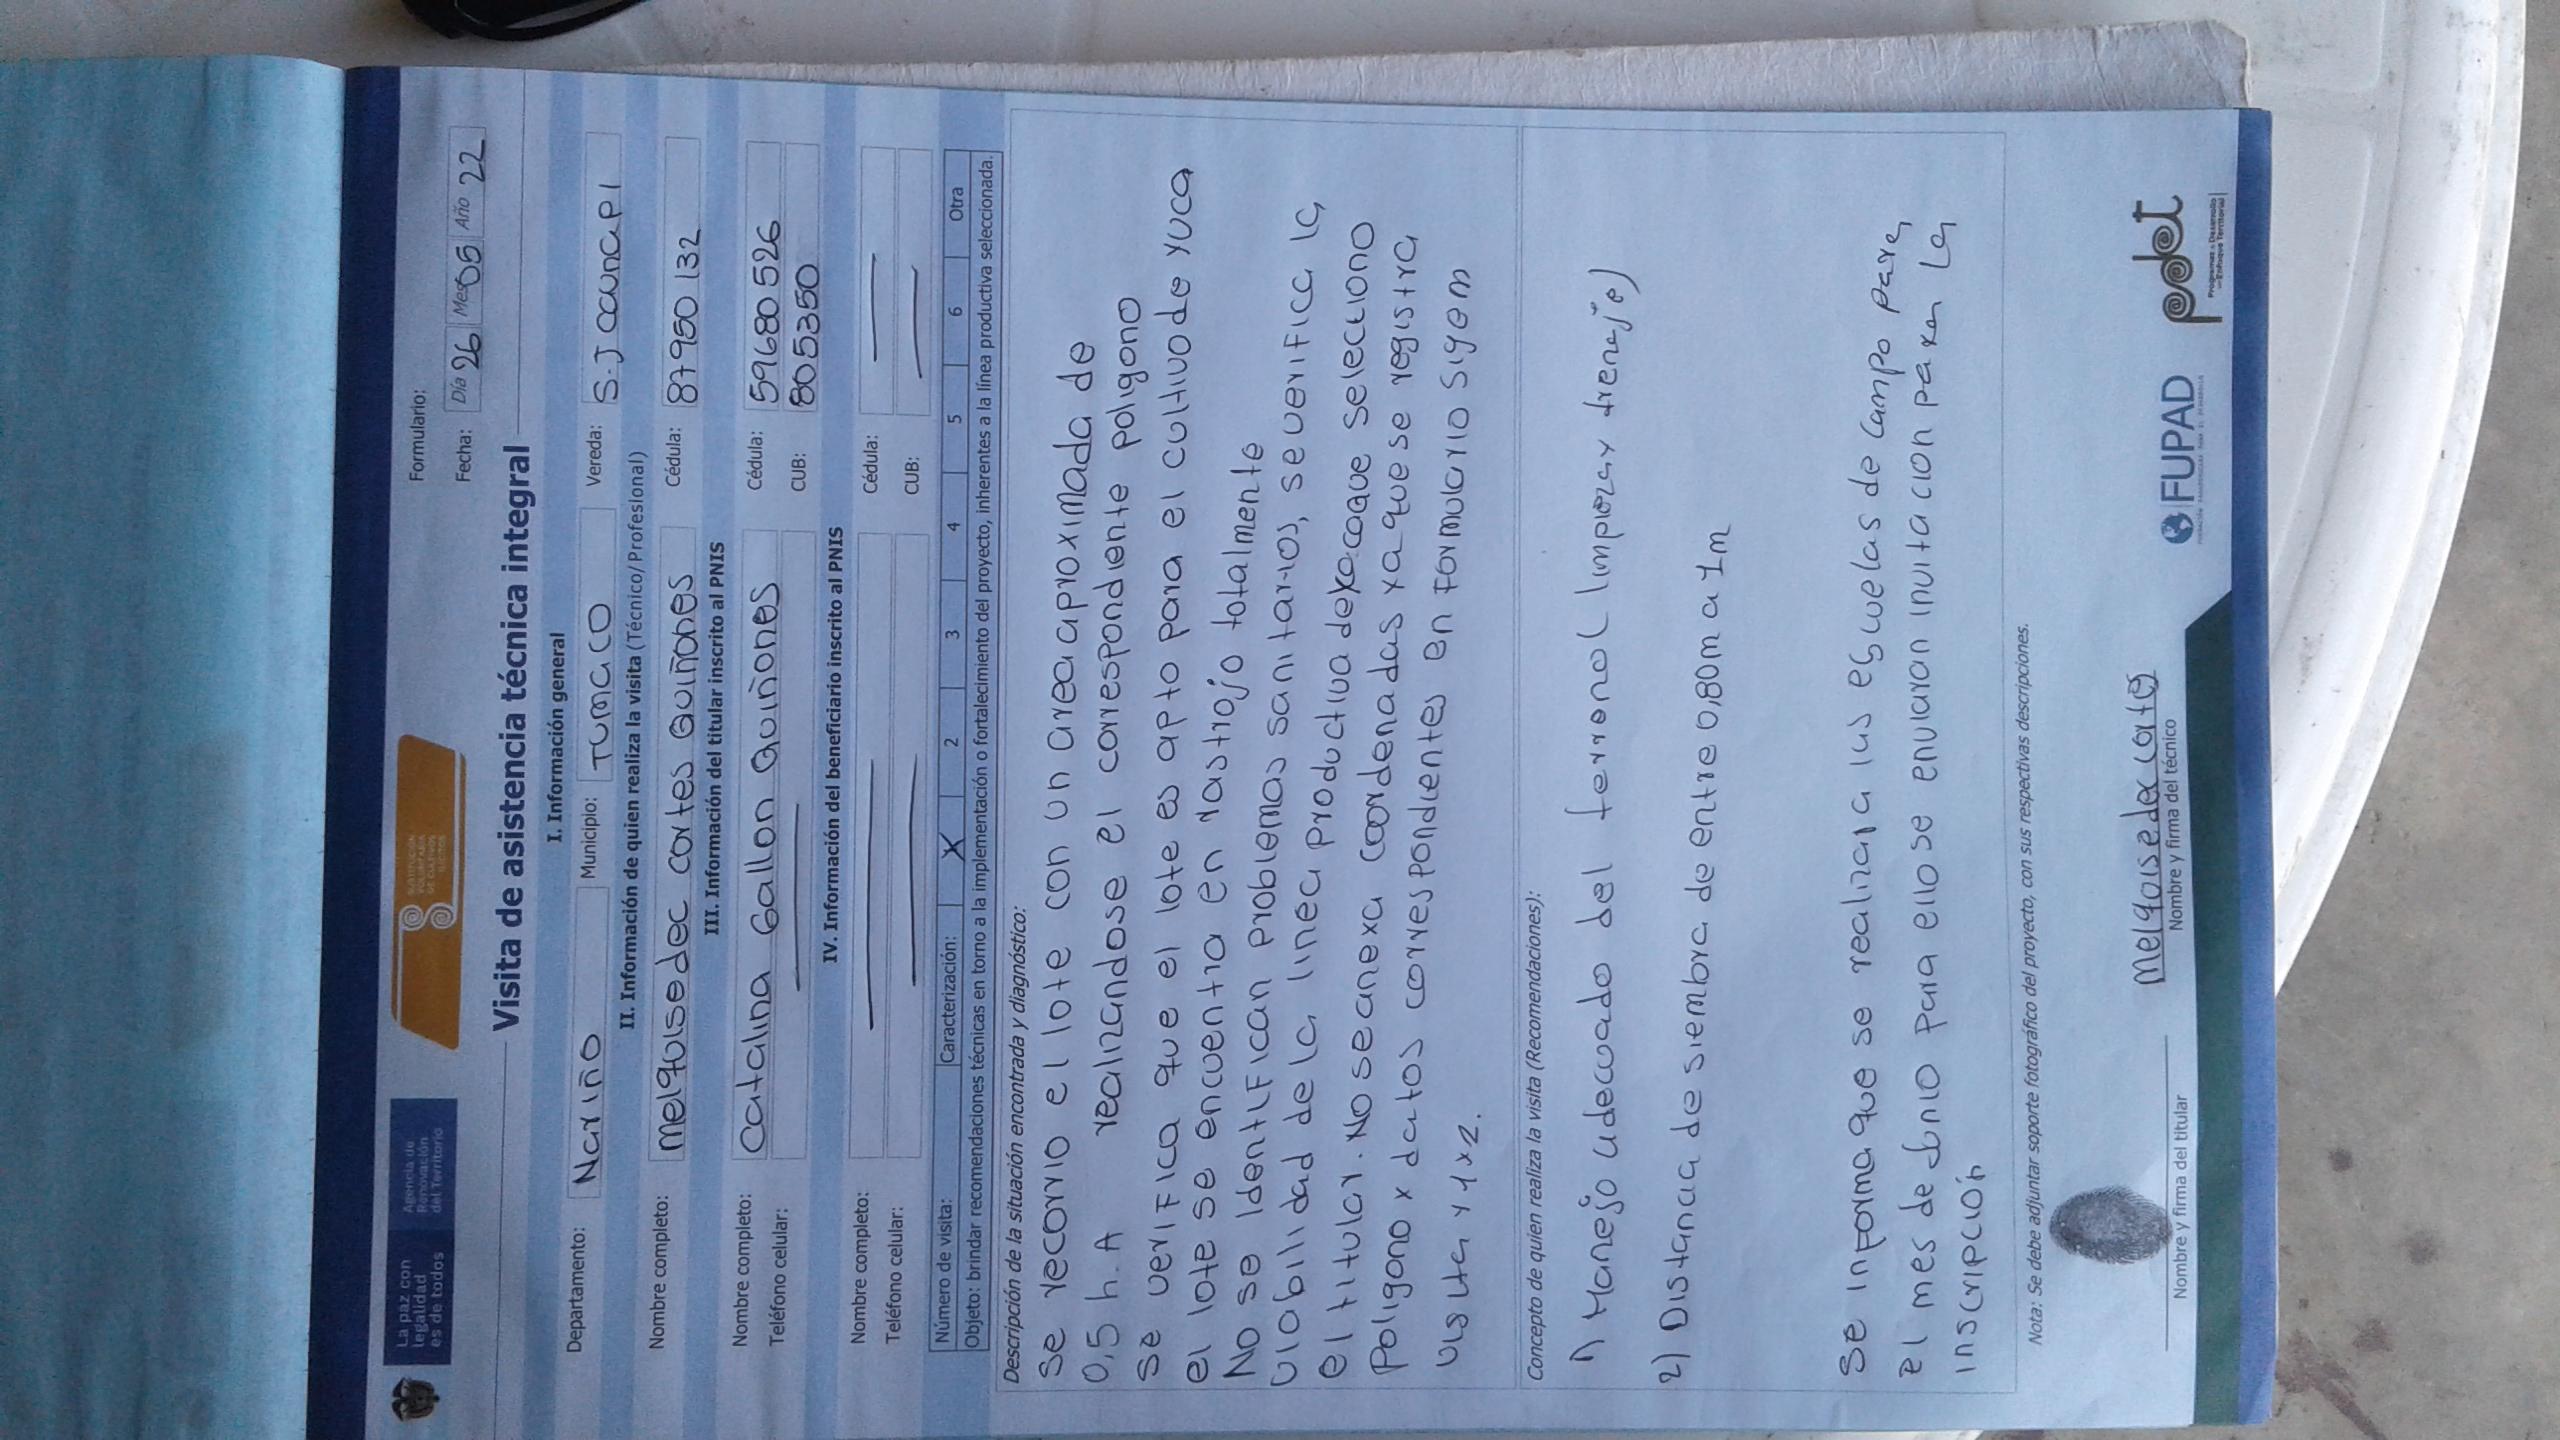 La paz con
legalidad
es de todos
Agencia de
Renovación
del Territorio
SUSTITUCIÓN
VOLUNTARIA
DE CULTIVOS
ILÍCITOS
Formulario:
Fecha: Día 26 Mes 05 Año 22
Visita de asistencia técnica integral
I. Información general
Departamento: Nariño Municipio: Tumaco Vereda: S.J caunapi
II. Información de quien realiza la visita (Técnico/Profesional)
Nombre completo: melquisedec cortes Quiñones Cédula: 87950132
III. Información del titular inscrito al PNIS
Nombre completo: Catalina Gallon Quiñones Cédula: 59680526
Teléfono celular: — CUB: 805350
IV. Información del beneficiario inscrito al PNIS
Nombre completo: — Cédula: —
Teléfono celular: — CUB: —
Número de visita: Caracterización: X 2 3 4 5 6 Otra
Objeto: brindar recomendaciones técnicas en torno a la implementación o fortalecimiento del proyecto, inherentes a la línea productiva seleccionada.
Descripción de la situación encontrada y diagnóstico:
se recorrio el lote con un area aproximada de
0,5 h.A realizandose el correspondiente poligono
se verifica que el lote es apto para el cultivo de yuca
el lote se encuentra en rastrojo totalmente
No se identifican problemas sanitarios, se verifica la
viabilidad de la linea productiva que selecciono
el titular. No se anexa coordenadas ya que se registra
Poligono y datos correspondientes en formulario sigem
visita y 1 x 2.
Concepto de quien realiza la visita (Recomendaciones):
1) Manejo adecuado del terreno (limpieza y drenaje)
2) Distancia de siembra de entre 0,80m a 1m
Se informa que se realizara las escuelas de campo para
el mes de Junio para ello se enviaran invitacion para la
inscripción
Nota: Se debe adjuntar soporte fotográfico del proyecto, con sus respectivas descripciones.
melquisedec cortes
Nombre y firma del titular Nombre y firma del técnico
FUPAD
pdet
Programas de Desarrollo
con Enfoque Territorial